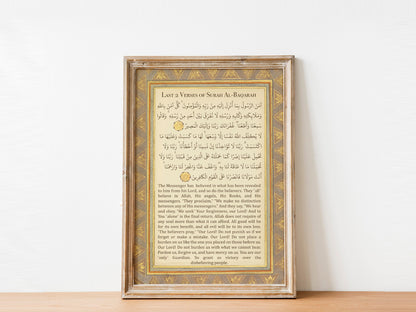 Last 2 Verses of Surah Al-Baqarah
آمَنَ الرَّسُولُ بِمَا أُنزِلَ إِلَيْهِ مِن رَّبِّهِ وَالْمُؤْمِنُونَ ۚ كُلٌّ آمَنَ بِاللَّهِ
وَمَلَائِكَتِهِ وَكُتُبِهِ وَرُسُلِهِ لَا نُفَرِّقُ بَيْنَ أَحَدٍ مِّن رُّسُلِهِ ۚ وَقَالُوا
سَمِعْنَا وَأَطَعْنَا ۖ غُفْرَانَكَ رَبَّنَا وَإِلَيْكَ الْمَصِيرُ
لَا يُكَلِّفُ اللَّهُ نَفْسًا إِلَّا وُسْعَهَا ۚ لَهَا مَا كَسَبَتْ وَعَلَيْهَا مَا
اكْتَسَبَتْ ۗ رَبَّنَا لَا تُؤَاخِذْنَا إِن نَّسِينَا أَوْ أَخْطَأْنَا ۚ رَبَّنَا وَلَا
تَحْمِلْ عَلَيْنَا إِصْرًا كَمَا حَمَلْتَهُ عَلَى الَّذِينَ مِن قَبْلِنَا ۚ رَبَّنَا وَلَا
تُحَمِّلْنَا مَا لَا طَاقَةَ لَنَا بِهِ ۖ وَاعْفُ عَنَّا وَاغْفِرْ لَنَا وَارْحَمْنَا ۚ
أَنتَ مَوْلَانَا فَانصُرْنَا عَلَى الْقَوْمِ الْكَافِرِينَ
The Messenger has believed in what has been revealed
to him from his Lord, and so do the believers. They ˹all˺
believe in Allah, His angels, His Books, and His
messengers. ˹They proclaim,˺ "We make no distinction
between any of His messengers." And they say, "We hear
and obey. ˹We seek˺ Your forgiveness, our Lord! And to
You ˹alone˺ is the final return. Allah does not require of
any soul more than what it can afford. All good will be
for its own benefit, and all evil will be to its own loss.
˹The believers pray,˺ "Our Lord! Do not punish us if we
forget or make a mistake. Our Lord! Do not place a
burden on us like the one you placed on those before us.
Our Lord! Do not burden us with what we cannot bear.
Pardon us, forgive us, and have mercy on us. You are our
˹only˺ Guardian. So grant us victory over the
disbelieving people.